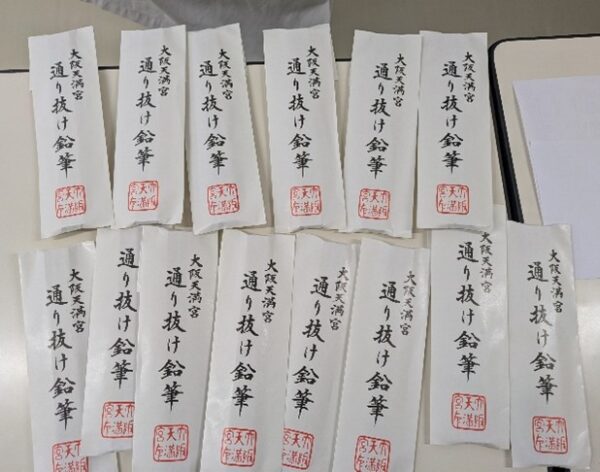 大阪天満宮
通り抜け鉛筆
大阪
天満
宮
大阪天満宮
通り抜け鉛筆
大阪
天満
宮
大阪天満宮
通り抜け鉛筆
大阪
天満
宮
大阪天満宮
通り抜け鉛筆
大阪
天満
宮
大阪天満宮
通り抜け鉛筆
大阪
天満
宮
大阪天満宮
通り抜け鉛筆
大阪
天満
宮
大阪天満宮
通り抜け鉛筆
大阪
天満
宮
通り抜け鉛筆
天満
宮
大阪天満宮
通り抜け鉛筆
大阪
天満
宮
大阪天満宮
通り抜け鉛筆
大阪
天満
宮
大阪天満宮
通り抜け鉛筆
天満
宮
大阪天満宮
通り抜け鉛筆
大阪
天満
宮
大阪天満宮
通り抜け鉛筆
大阪
天満
宮
大阪天満宮
通り抜け鉛筆
大阪
天満
宮